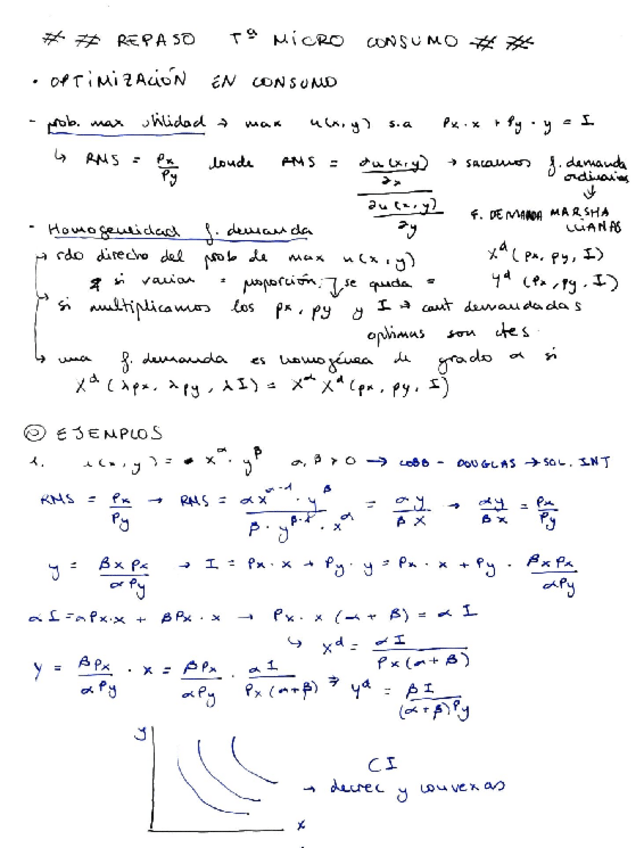 # # REPASO Tª MICRO CONSUMO # #
• OPTIMIZACIÓN EN CONSUMO
- prob. max utilidad → max u(x,y) s.a Px·x + Py·y = I
↳ RMS = Px/Py donde RMS = (∂u(x,y)/∂x)/(∂u(x,y)/∂y) → sacamos f. demanda ordinarias
↓
F. DEMANDA MARSHALLIANAS
- Homogeneidad f. demanda
→ rdo directo del prob de max u(x,y) Xᵈ(px, py, I)
si varian = proporción, se queda = Yᵈ(px, py, I)
→ si multiplicamos los px, py y I → cant demandadas
optimas son ctes.
→ una f. demanda es homogénea de grado α si
Xᵈ(λpx, λpy, λI) = X^α Xᵈ(px, py, I)
EJEMPLOS
1. u(x,y) = x^α · y^β α, β > 0 → COBB - DOUGLAS → SOL. INT
RMS = Px/Py → RMS = (αx^(α-1) · y^β)/(β · y^(β-1) · x^α) = αy/βx → αy/βx = Px/Py
y = βxPx/αPy → I = Px·x + Py·y = Px·x + Py · βxPx/αPy
αI = αPx·x + βPx·x → Px·x(α+β) = αI
↳ xᵈ = αI/(Px(α+β))
Y = βPx/αPy · x = βPx/αPy · αI/(Px(α+β)) ⇒ yᵈ = βI/((α+β)Py)
y
CI
→ decrec y convexas
x